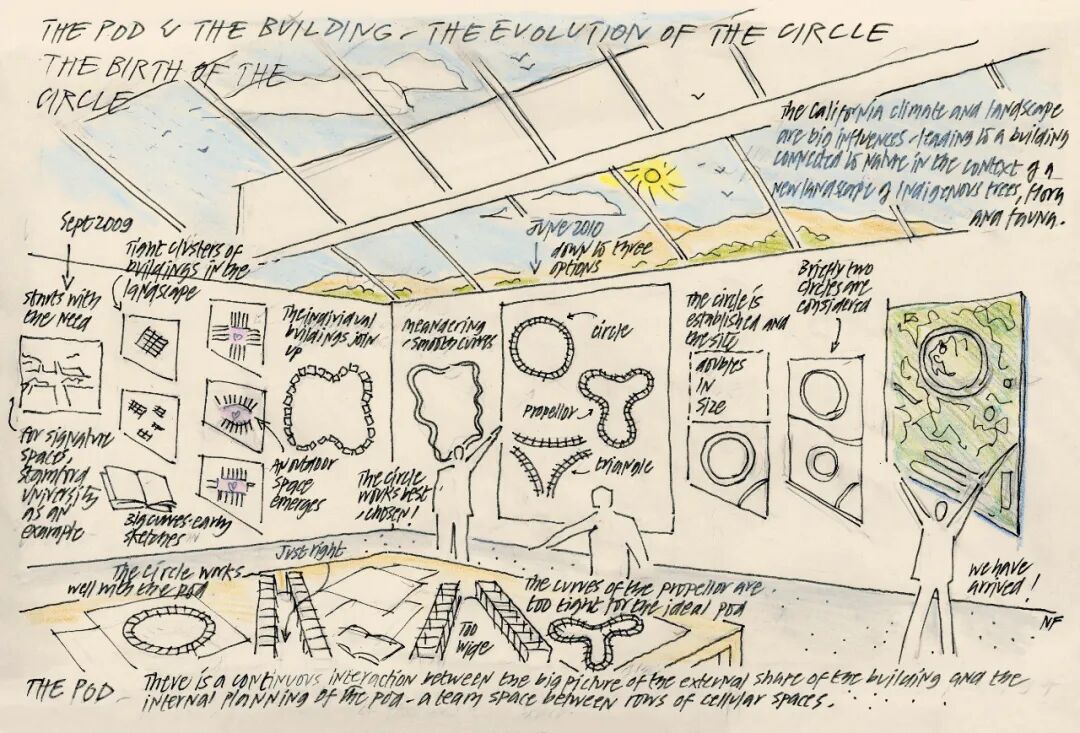 THE POD & THE BUILDING - THE EVOLUTION OF THE CIRCLE
THE BIRTH OF THE
CIRCLE
The California climate and landscape
are big influences - leading to a building
connected to nature in the context of a
new landscape of Indigenous trees, flora
and fauna.
Sept 2009
Starts with
the need
for signature
space,
Stamford
University
as an
example
Tight clusters of
buildings in the
landscape
Big curves - early
sketches
The individual
buildings join
up
An outdoor
space
emerges
meandering
smooth curves
The circle
works best
, chosen!
June 2010
down to three
options
circle
propellor
triangle
The circle is
established and
the site
doubles
in
size
Briefly two
circles are
considered
we have
arrived!
NF
The circle works
well with the pod
Just right
Too
wide
The curves of the propellor are
too tight for the ideal pod
THE POD - There is a continuous interaction between the big picture of the external share of the building and the
internal planning of the pod - a team space between rows of cellular spaces.